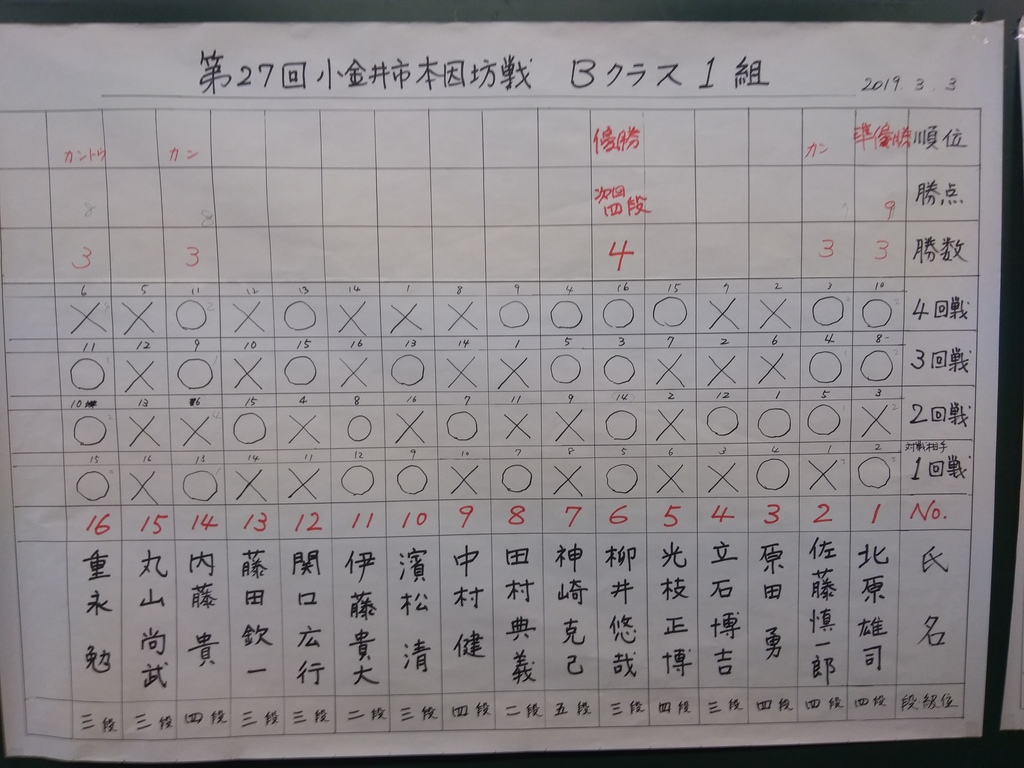 第27回小金井市本因坊戦 Bクラス1組
2019.3.3
カントウ カン 優勝 カン 準優勝 順位
8 8 次回四段 7 9 勝点
3 3 4 3 3 勝数
6 5 11 12 13 14 1 8 9 4 16 15 7 2 3 10
× × ○ × ○ × × × ○ ○ ○ ○ × × ○ ○ 4回戦
11 12 9 10 15 16 13 14 1 5 3 7 2 6 4 8
○ × ○ × ○ × ○ × × ○ ○ × × × ○ ○ 3回戦
10 13 6 15 4 8 16 7 11 9 14 2 12 1 5 3
○ × × ○ × ○ × ○ × × ○ × ○ ○ ○ × 2回戦
15 16 13 14 11 12 9 10 7 8 5 6 3 4 1 2 対戦相手
○ × ○ × × ○ ○ × ○ × ○ × × ○ × ○ 1回戦
16 15 14 13 12 11 10 9 8 7 6 5 4 3 2 1 No.
重永勉 丸山尚武 内藤貴 藤田欽一 関口宏行 伊藤貴大 濱松清 中村健 田村典義 神崎克己 柳井悠哉 光枝正博 立石博吉 原田勇 佐藤慎一郎 北原雄司 氏名
三段 三段 四段 三段 三段 二段 三段 四段 二段 五段 三段 四段 三段 四段 四段 四段 段級位